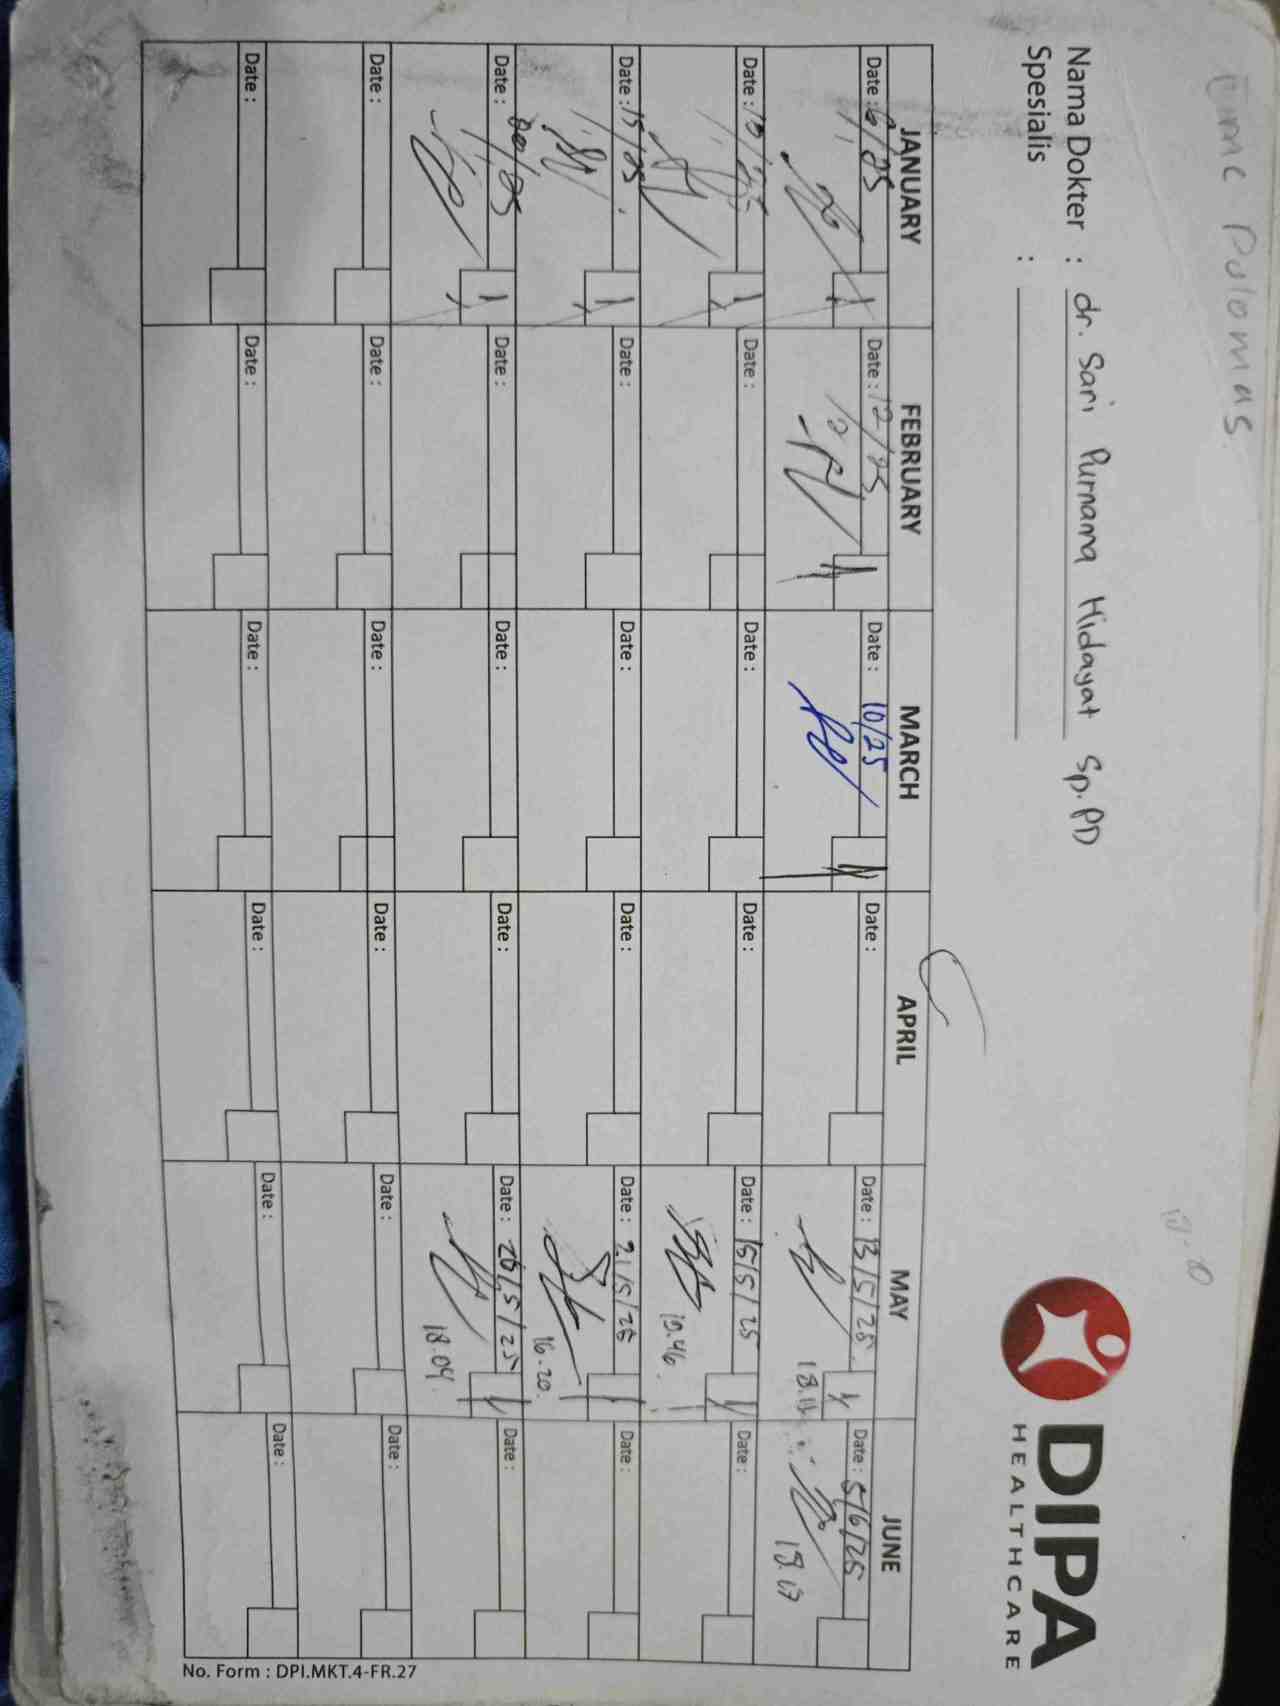 Pulomas
Nama Dokter : dr. Sari Purnama Hidayat Sp.PD
Spesialis :
DIPA
HEALTHCARE
JANUARY FEBRUARY MARCH APRIL MAY JUNE
Date : Date : 12/25 Date : 10/25 Date : Date : 13/5/25 Date : 5/6/25
18.07
Date : Date : Date : Date : Date : 15/5/25 Date :
19.46
Date : 15/25 Date : Date : Date : Date : 21/5/25 Date :
16.20
Date : Date : Date : Date : Date : 26/5/25 Date :
18.04
Date : Date : Date : Date : Date : Date :
Date : Date : Date : Date : Date : Date :
No. Form : DPI.MKT.4-FR.27